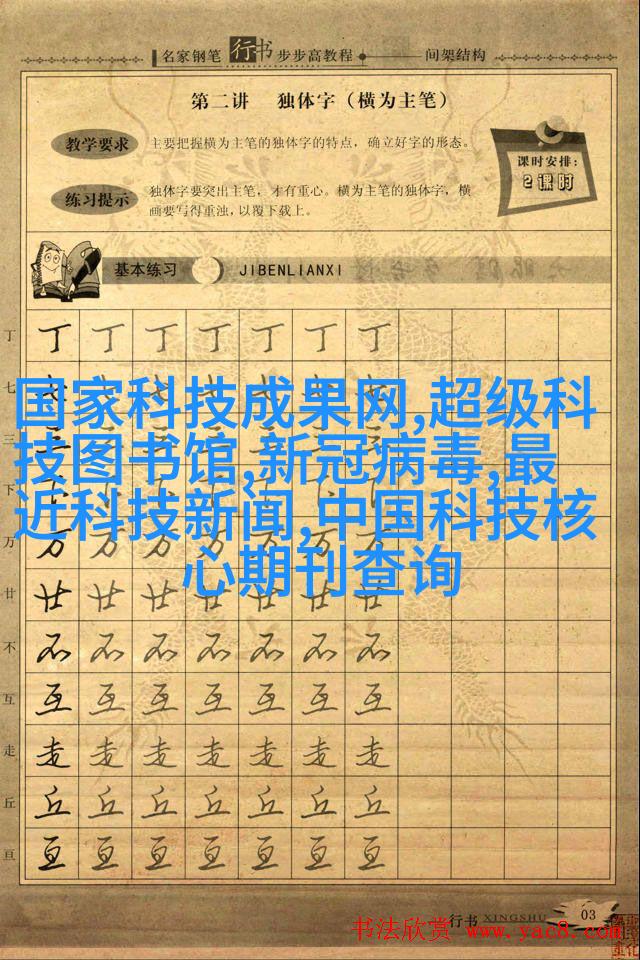 名家钢笔 行书 步步高教程 间架结构
第二讲 独体字（横为主笔）
教学要求 主要把握横为主笔的独体字的特点，确立好字的形态。
课时安排：
2课时
练习提示 独体字要突出主笔，才有重心。横为主笔的独体字，横
画要写得重浊，以覆下载上。
基本练习 JIBENLIANXI
丁 丁 丁 丁 丁 丁 丁 丁
七
国家科技成果网,超级科
三
技图书馆,新冠病毒,最
下
近科技新闻,中国科技核
万 万 万 万 万 万 万 万
心期刊查询
廿 廿 廿 廿 廿 廿 廿 廿
不 不 不 不 不 不 不 不
互 互 互 互 互 互 互 互
走 走 走 走 走 走 走 走
丘 丘 丘 丘 丘 丘 丘 丘
亘 亘 亘 亘 亘 亘 亘 亘
行书 XINGSHU 03
书法欣赏 www.yac8.com